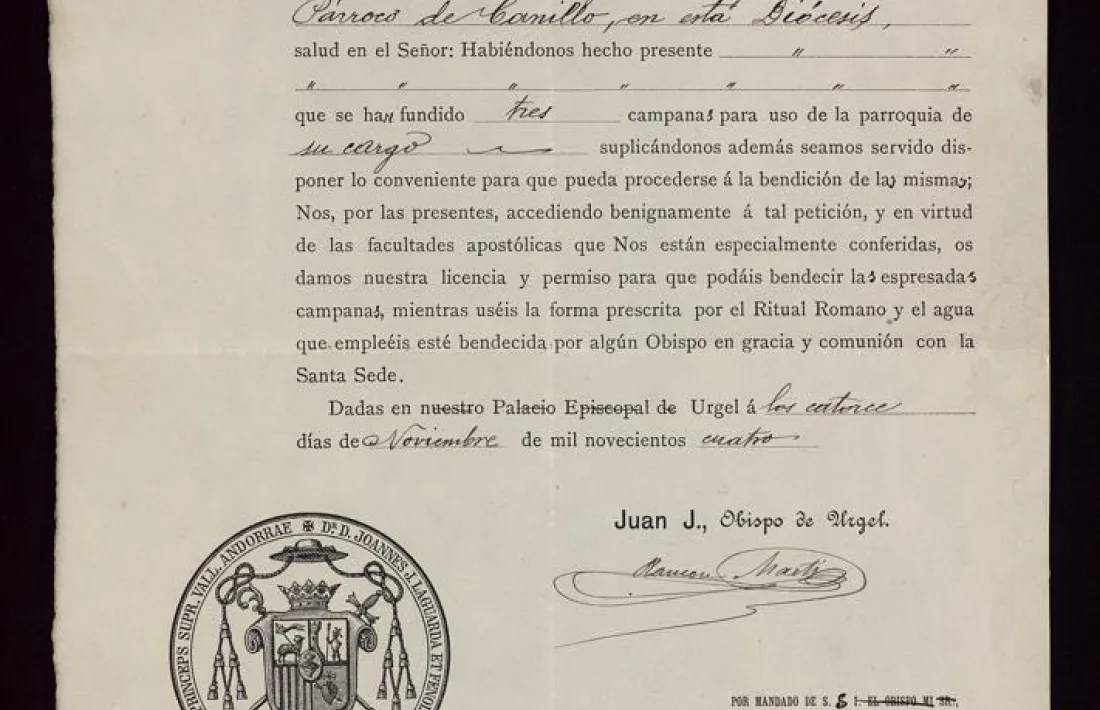 Párroco de Canillo, en esta Diócesis,
salud en el Señor: Habiéndonos hecho presente " "
" " " " " " "
que se han fundido tres campanas para uso de la parroquia de
su cargo suplicándonos además seamos servido dis-
poner lo conveniente para que pueda procederse á la bendición de las mismas;
Nos, por las presentes, accediendo benignamente á tal petición, y en virtud
de las facultades apostólicas que Nos están especialmente conferidas, os
damos nuestra licencia y permiso para que podáis bendecir las espresadas
campanas, mientras uséis la forma prescrita por el Ritual Romano y el agua
que empleéis esté bendecida por algún Obispo en gracia y comunión con la
Santa Sede.
Dadas en nuestro Palacio Episcopal de Urgel á los catorce
días de Noviembre de mil novecientos cuatro
Juan J., Obispo de Urgel.
Ramon Martí
PRINCEPS SUPR. VALL. ANDORRAE ✠ Dʳ. D. JOANNES J. LAGUARDA ET FENOL
POR MANDADO DE S. S I. EL OBISPO MI SR.,